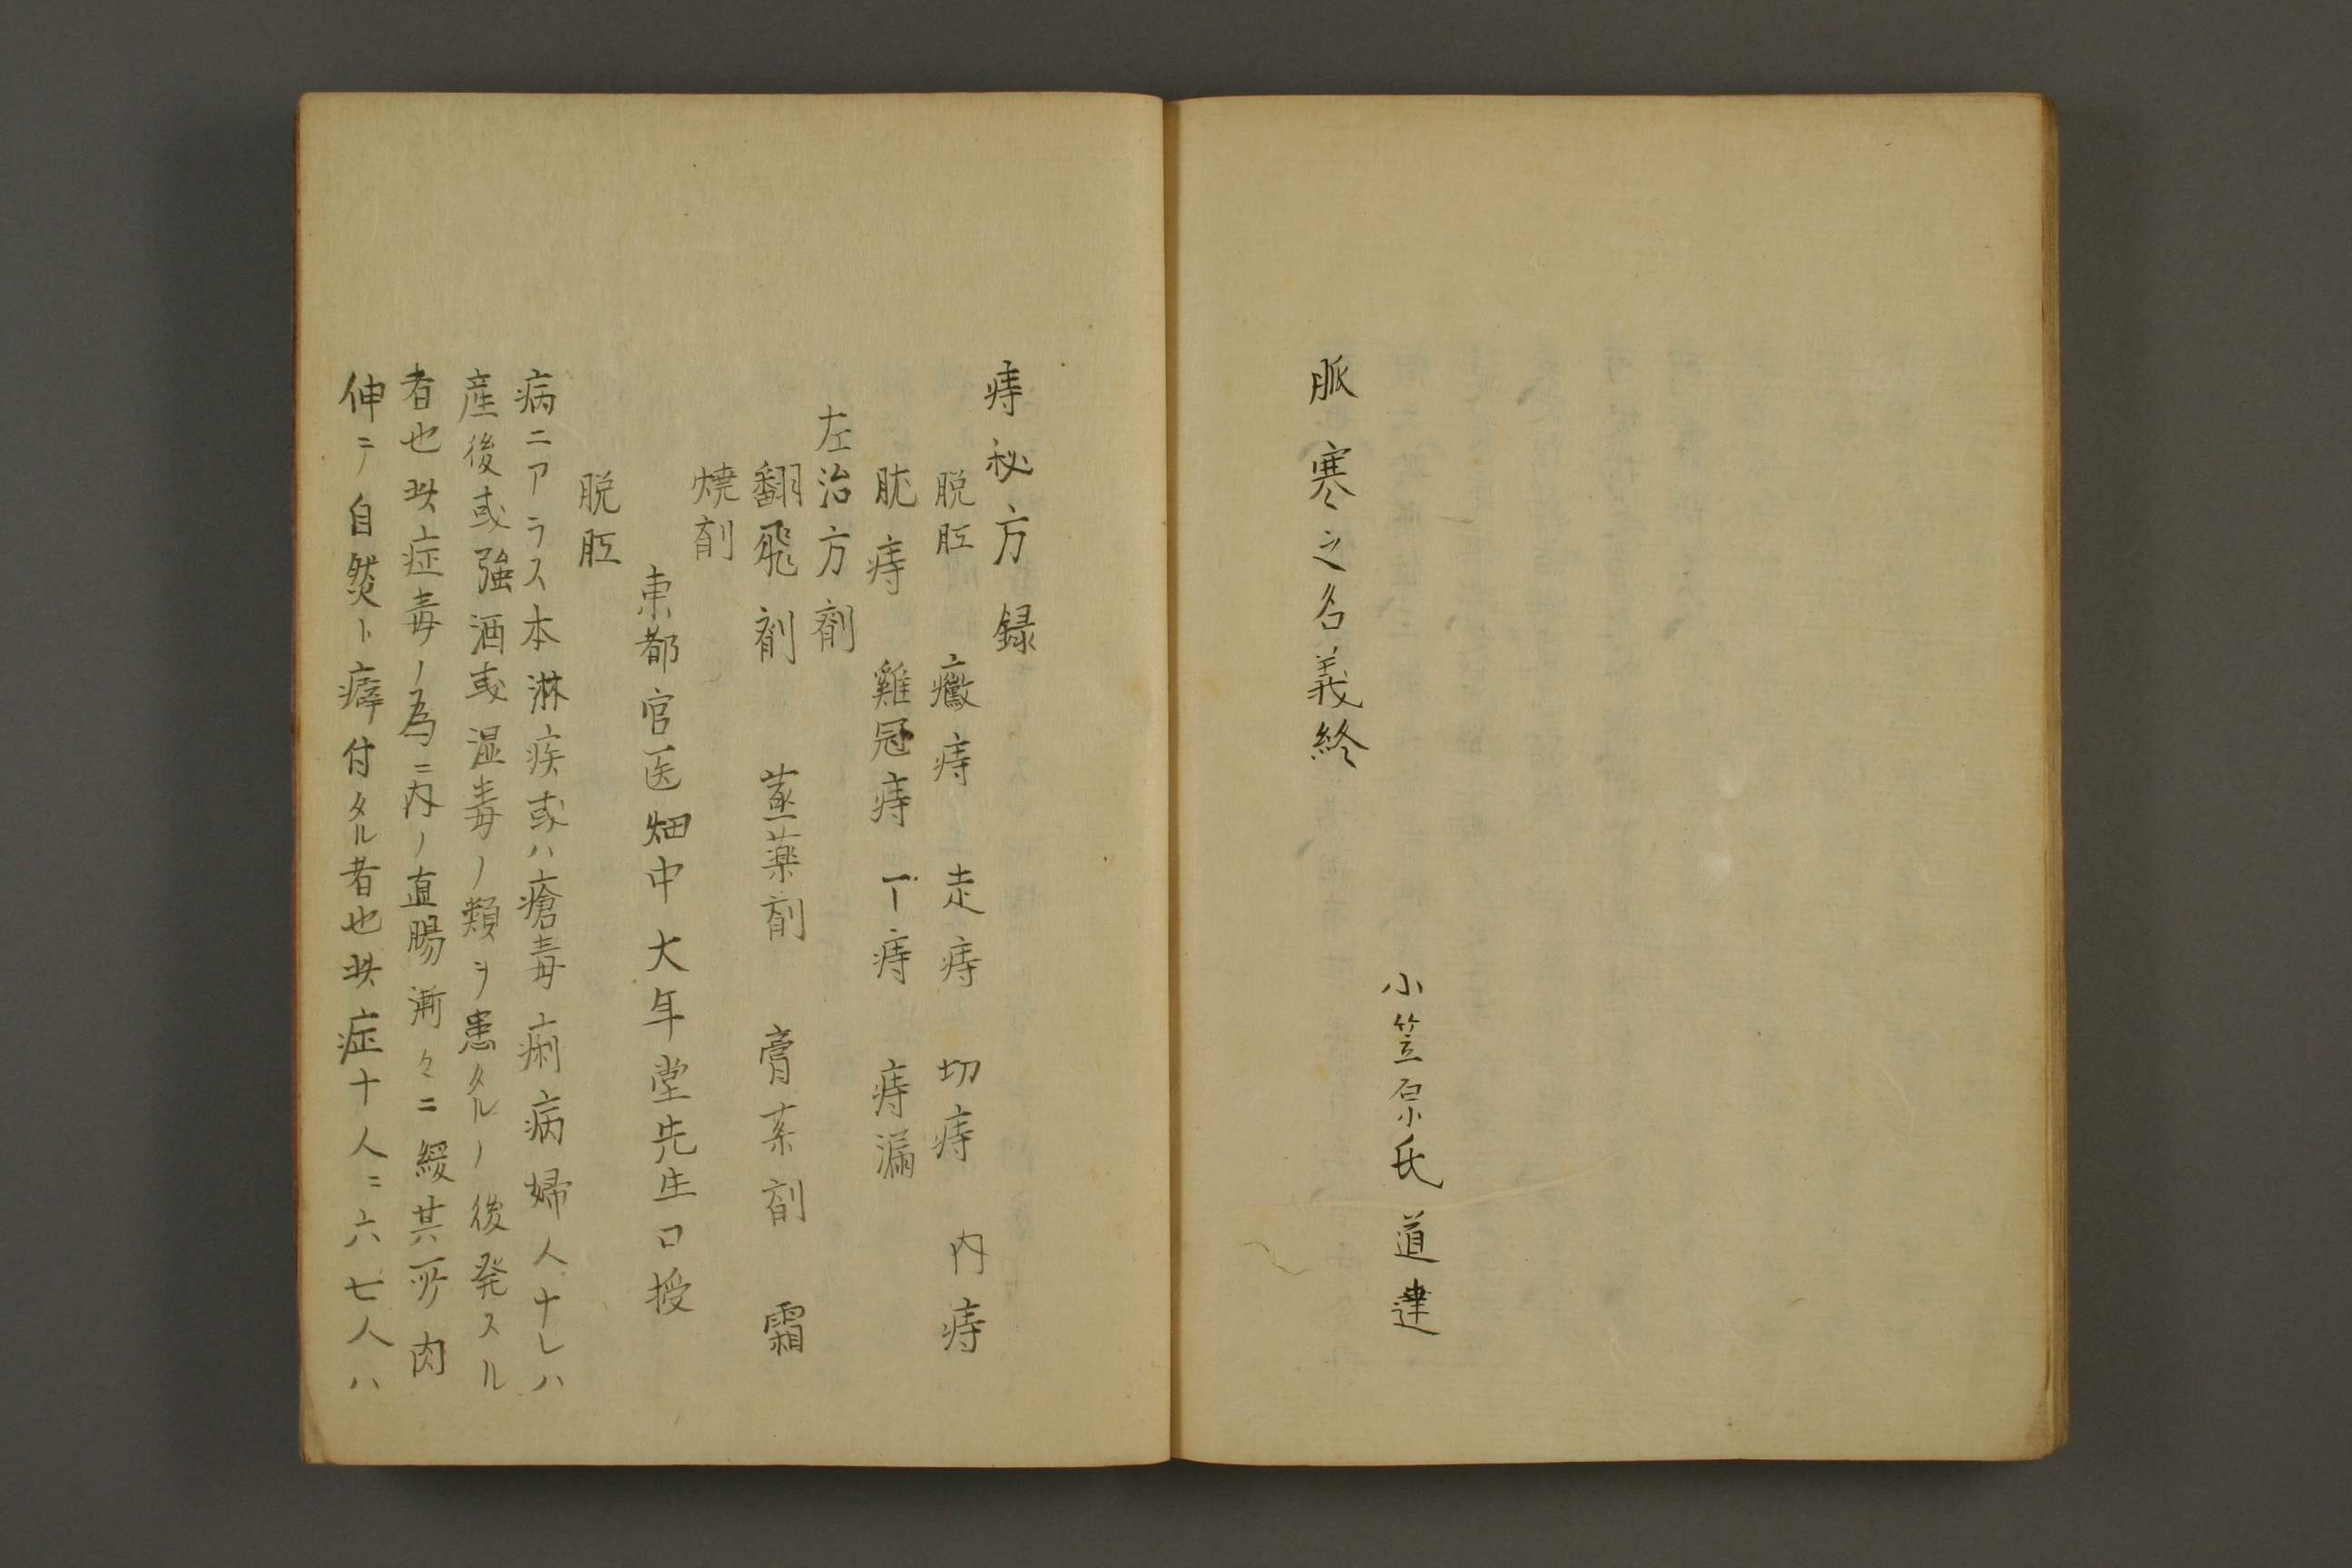 小笠原氏道達
脈寒之名義終
痔秘方録
脱肛 癥痔 走痔 切痔 内痔
肬痔 雞冠痔 丁痔 痔漏
左治方剤
翻飛剤 蒸薬剤 膏薬剤 霜
焼剤
東都官医畑中大年堂先生口授
脱肛
病ニアラス本淋疾或ハ瘡毒痢病婦人ナレハ
産後或強酒或湿毒ノ類ヲ患タルノ後発スル
者也此症毒ノ為ニ内ノ直腸漸々ニ緩其所肉
伸テ自然ト癖付タル者也此症十人ニ六七人ハ